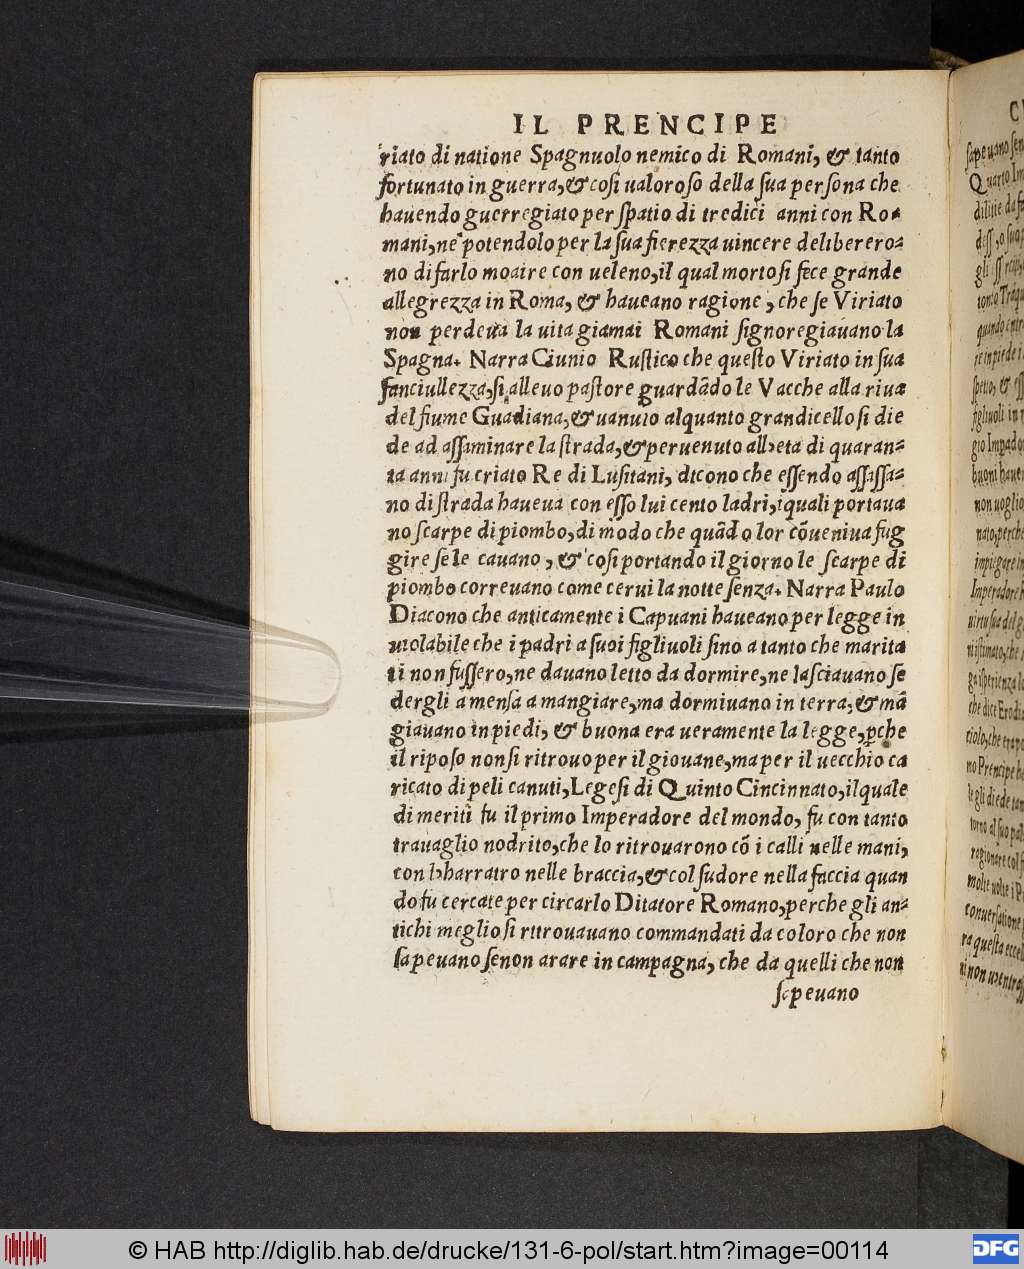 IL PRENCIPE
riato di natione Spagnuolo nemico di Romani, & tanto
fortunato in guerra, & cosi ualoroso della sua persona che
hauendo guerregiato per spatio di tredici anni con Ro-
mani, ne potendolo per la sua fierezza uincere deliberero-
no di farlo moaire con ueleno, il qual morto si fece grande
allegrezza in Roma, & haueano ragione, che se Viriato
non perdeua la uita giamai Romani signoregiauano la
Spagna. Narra Ciunio Rustico che questo Viriato in sua
fanciullezza, si alleuo pastore guardādo le Vacche alla riua
del fiume Guadiana, & uanuto alquanto grandicello si die
de ad assaminare la strada, & peruenuto all'eta di quaran-
ta anni fu criato Re di Lusitani, dicono che essendo assassa-
no di strada haueua con esso lui cento ladri, iquali portaua
no scarpe di piombo, di modo che quādo lor cōueniua fug
gire se le cauano, & cosi portando il giorno le scarpe di
piombo correuano come cerui la notte senza. Narra Paulo
Diacono che anticamente i Capuani haueano per legge in
uiolabile che i padri a suoi figliuoli fino a tanto che marita
ti non fussero, ne dauano letto da dormire, ne lasciauano se
dergli a mensa a mangiare, ma dormiuano in terra, & mā
giauano in piedi, & buona era ueramente la legge, ꝑche
il riposo non si ritrouo per il giouane, ma per il uecchio ca
ricato di peli canuti, Legesi di Quinto Cincinnato, il quale
di meriti fu il primo Imperadore del mondo, fu con tanto
trauaglio nodrito, che lo ritrouarono cō i calli nelle mani,
con l'harratro nelle braccia, & col sudore nella faccia quan
do fu cercate per circarlo Ditatore Romano, perche gli an-
tichi meglio si ritrouauano commandati da coloro che non
sapeuano senon arare in campagna, che da quelli che non
sapeuano
© HAB http://diglib.hab.de/drucke/131-6-pol/start.htm?image=00114
DFG